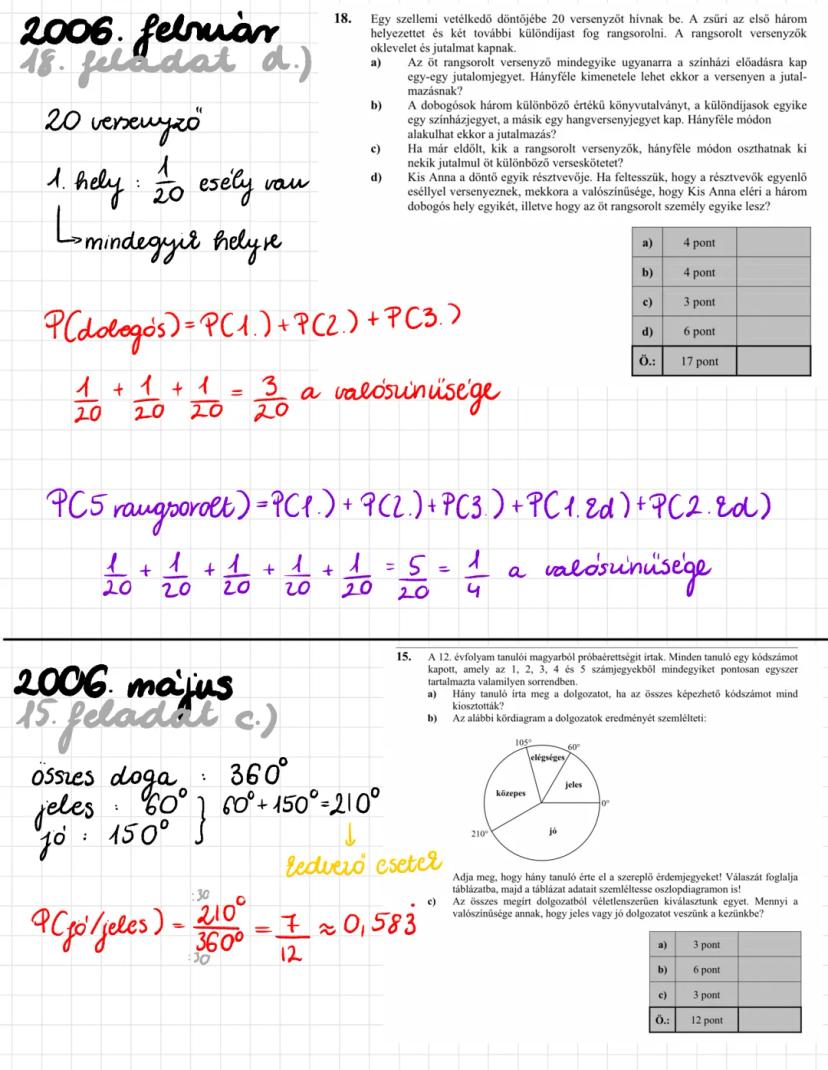 2006. február
18. feladat d.)
20 versenyző
1. hely : 1/20 esély van
↳ mindegyik helyre
18. Egy szellemi vetélkedő döntőjébe 20 versenyzőt hívnak be. A zsűri az első három
helyezettet és két további különdíjast fog rangsorolni. A rangsorolt versenyzők
oklevelet és jutalmat kapnak.
a) Az öt rangsorolt versenyző mindegyike ugyanarra a színházi előadásra kap
egy-egy jutalomjegyet. Hányféle kimenetele lehet ekkor a versenyen a jutal-
mazásnak?
b) A dobogósok három különböző értékű könyvutalványt, a különdíjasok egyike
egy színházjegyet, a másik egy hangversenyjegyet kap. Hányféle módon
alakulhat ekkor a jutalmazás?
c) Ha már eldőlt, kik a rangsorolt versenyzők, hányféle módon oszthatnak ki
nekik jutalmul öt különböző verseskötetet?
d) Kis Anna a döntő egyik résztvevője. Ha feltesszük, hogy a résztvevők egyenlő
eséllyel versenyeznek, mekkora a valószínűsége, hogy Kis Anna eléri a három
dobogós hely egyikét, illetve hogy az öt rangsorolt személy egyike lesz?
a) 4 pont
b) 4 pont
c) 3 pont
d) 6 pont
Ö.: 17 pont
P(dobogós) = P(1.) + P(2.) + P(3.)
1/20 + 1/20 + 1/20 = 3/20 a valószínűsége
P(5 rangsorolt) = P(1.) + P(2.) + P(3.) + P(1. kd) + P(2. kd)
1/20 + 1/20 + 1/20 + 1/20 + 1/20 = 5/20 = 1/4 a valószínűsége
2006. május
15. feladat c.)
összes doga : 360°
jeles : 60° } 60° + 150° = 210°
jó : 150°
↓
kedvező esetek
:30
P(jó/jeles) = 210°/360° = 7/12 ≈ 0,583̇
:30
15. A 12. évfolyam tanulói magyarból próbaérettségit írtak. Minden tanuló egy kódszámot
kapott, amely az 1, 2, 3, 4 és 5 számjegyekből mindegyiket pontosan egyszer
tartalmazta valamilyen sorrendben.
a) Hány tanuló írta meg a dolgozatot, ha az összes képezhető kódszámot mind
kiosztották?
b) Az alábbi kördiagram a dolgozatok eredményét szemlélteti:
105°
60°
elégséges
jeles
közepes
0°
210°
jó
Adja meg, hogy hány tanuló érte el a szereplő érdemjegyeket! Válaszát foglalja
táblázatba, majd a táblázat adatait szemléltesse oszlopdiagramon is!
c) Az összes megírt dolgozatból véletlenszerűen kiválasztunk egyet. Mennyi a
valószínűsége annak, hogy jeles vagy jó dolgozatot veszünk a kezünkbe?
a) 3 pont
b) 6 pont
c) 3 pont
Ö.: 12 pont